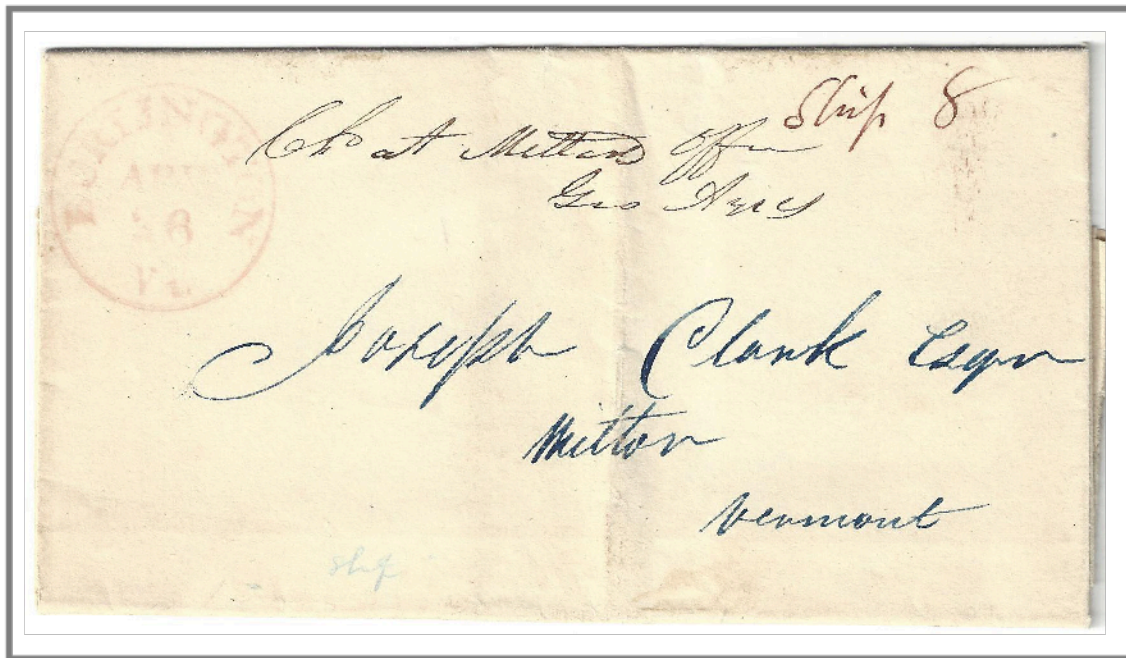 BURLINGTON
APR
26
Vt.
Ship 8
Chd at Milton Office
Geo Ayres
Joseph Clark Esqr
Milton
Vermont
Ship